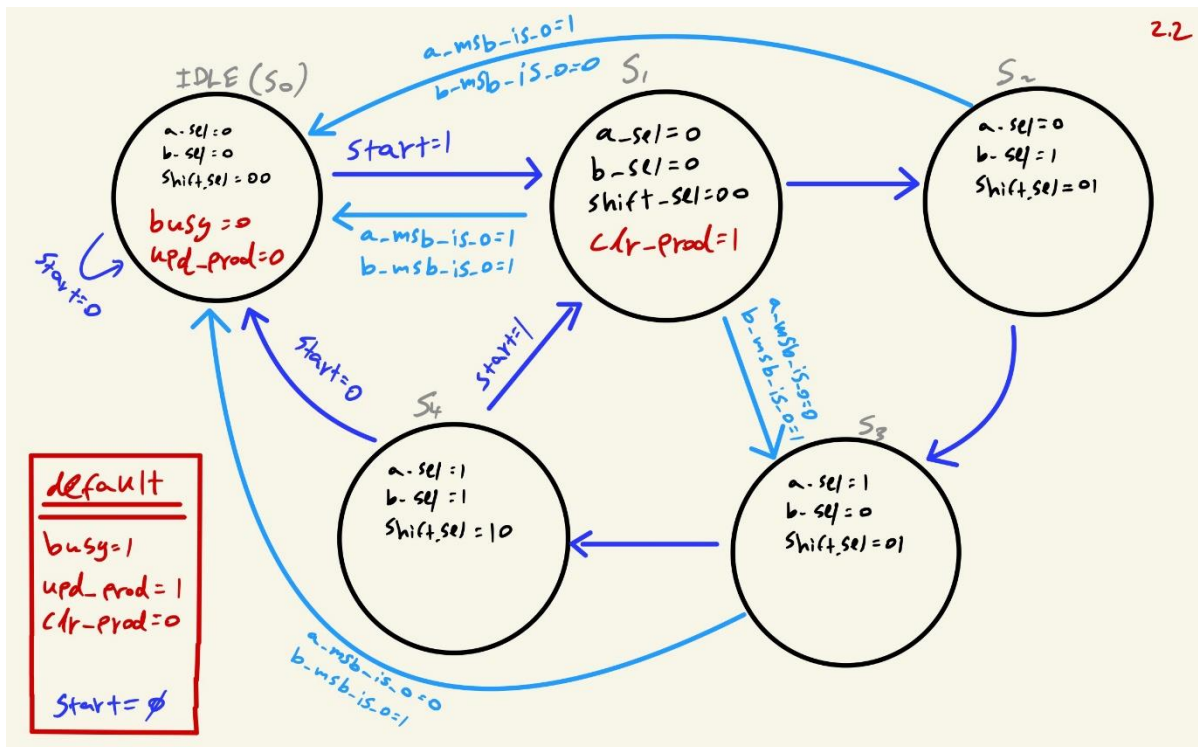 2.2
a_msb_is_0=1
b_msb_is_0=0
IDLE (S0)
a_sel=0
b_sel=0
shift_sel=00
busy=0
upd_prod=0
start=0
start=1
a_msb_is_0=1
b_msb_is_0=1
S1
a_sel=0
b_sel=0
shift_sel=00
clr_prod=1
S2
a_sel=0
b_sel=1
shift_sel=01
start=0
start=1
a_msb_is_0=0
b_msb_is_0=1
S4
a_sel=1
b_sel=1
shift_sel=10
S3
a_sel=1
b_sel=0
shift_sel=01
a_msb_is_0=0
b_msb_is_0=1
default
busy=1
upd_prod=1
clr_prod=0
start=ϕ